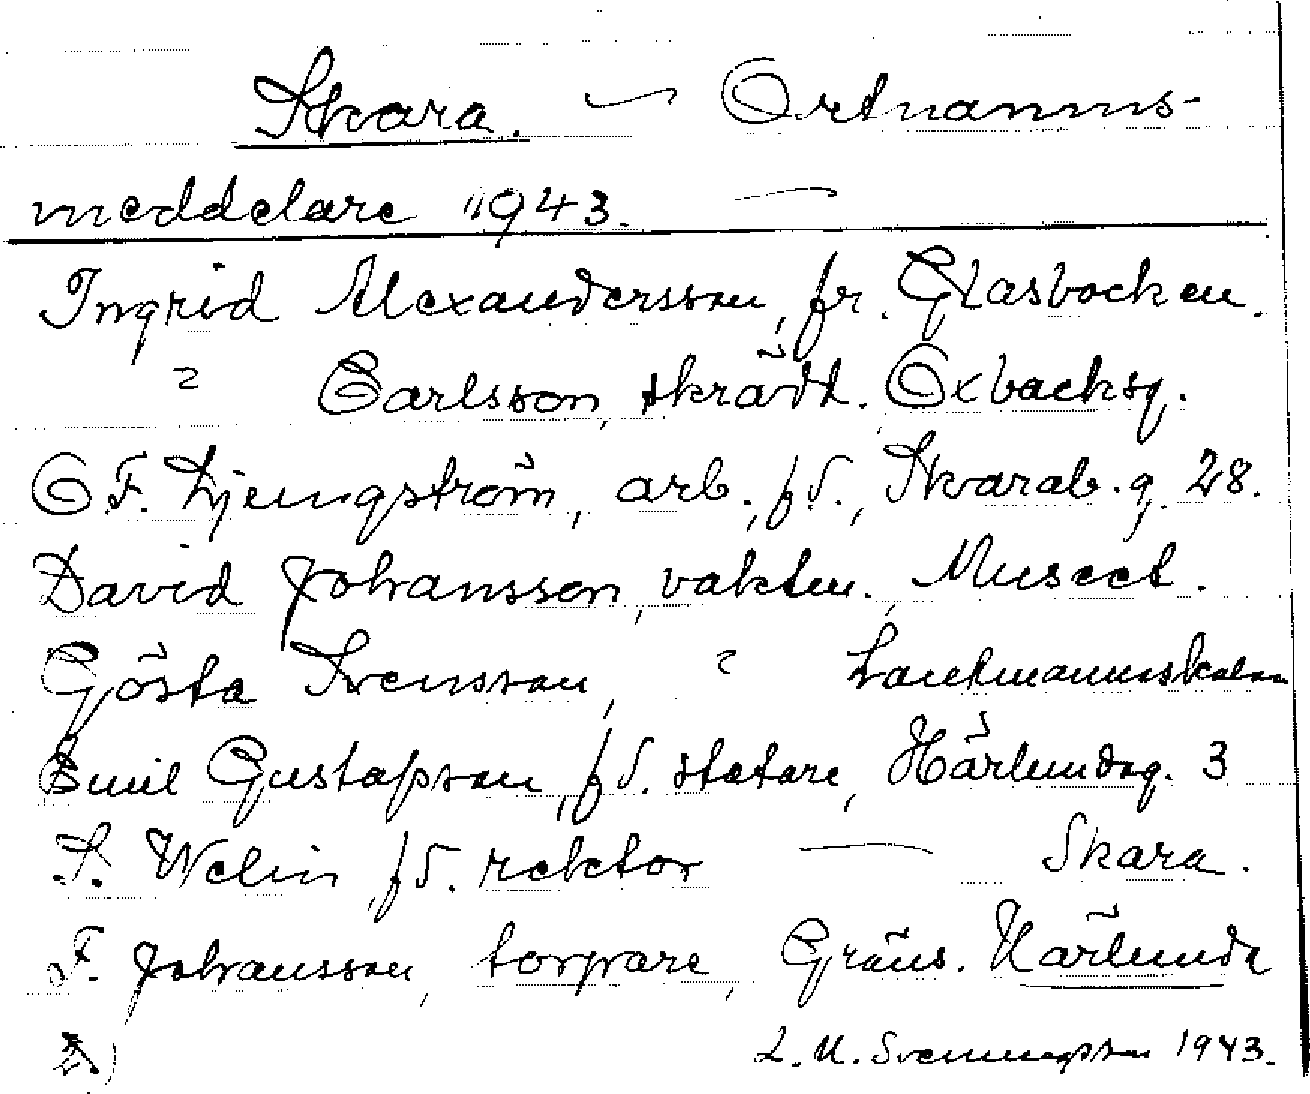 Skara. — Ortnamns-
meddelare 1943. —
Ingrid Alexandersson, fr. Glasbacken.
" Carlsson, skrädd. Oxbacksg.
C F. Ljungström, arb., f.d., Skarab. g. 28.
David Johansson, vaktm., Museet.
Gösta Svensson, " Lantmannaskolan
Emil Gustafsson, f d. statare, Härlundag. 3
S. Welin, f d. rektor — Skara.
F. Johansson, torpare, Gräns. Härlunda
L. M. Svenungsson 1943.